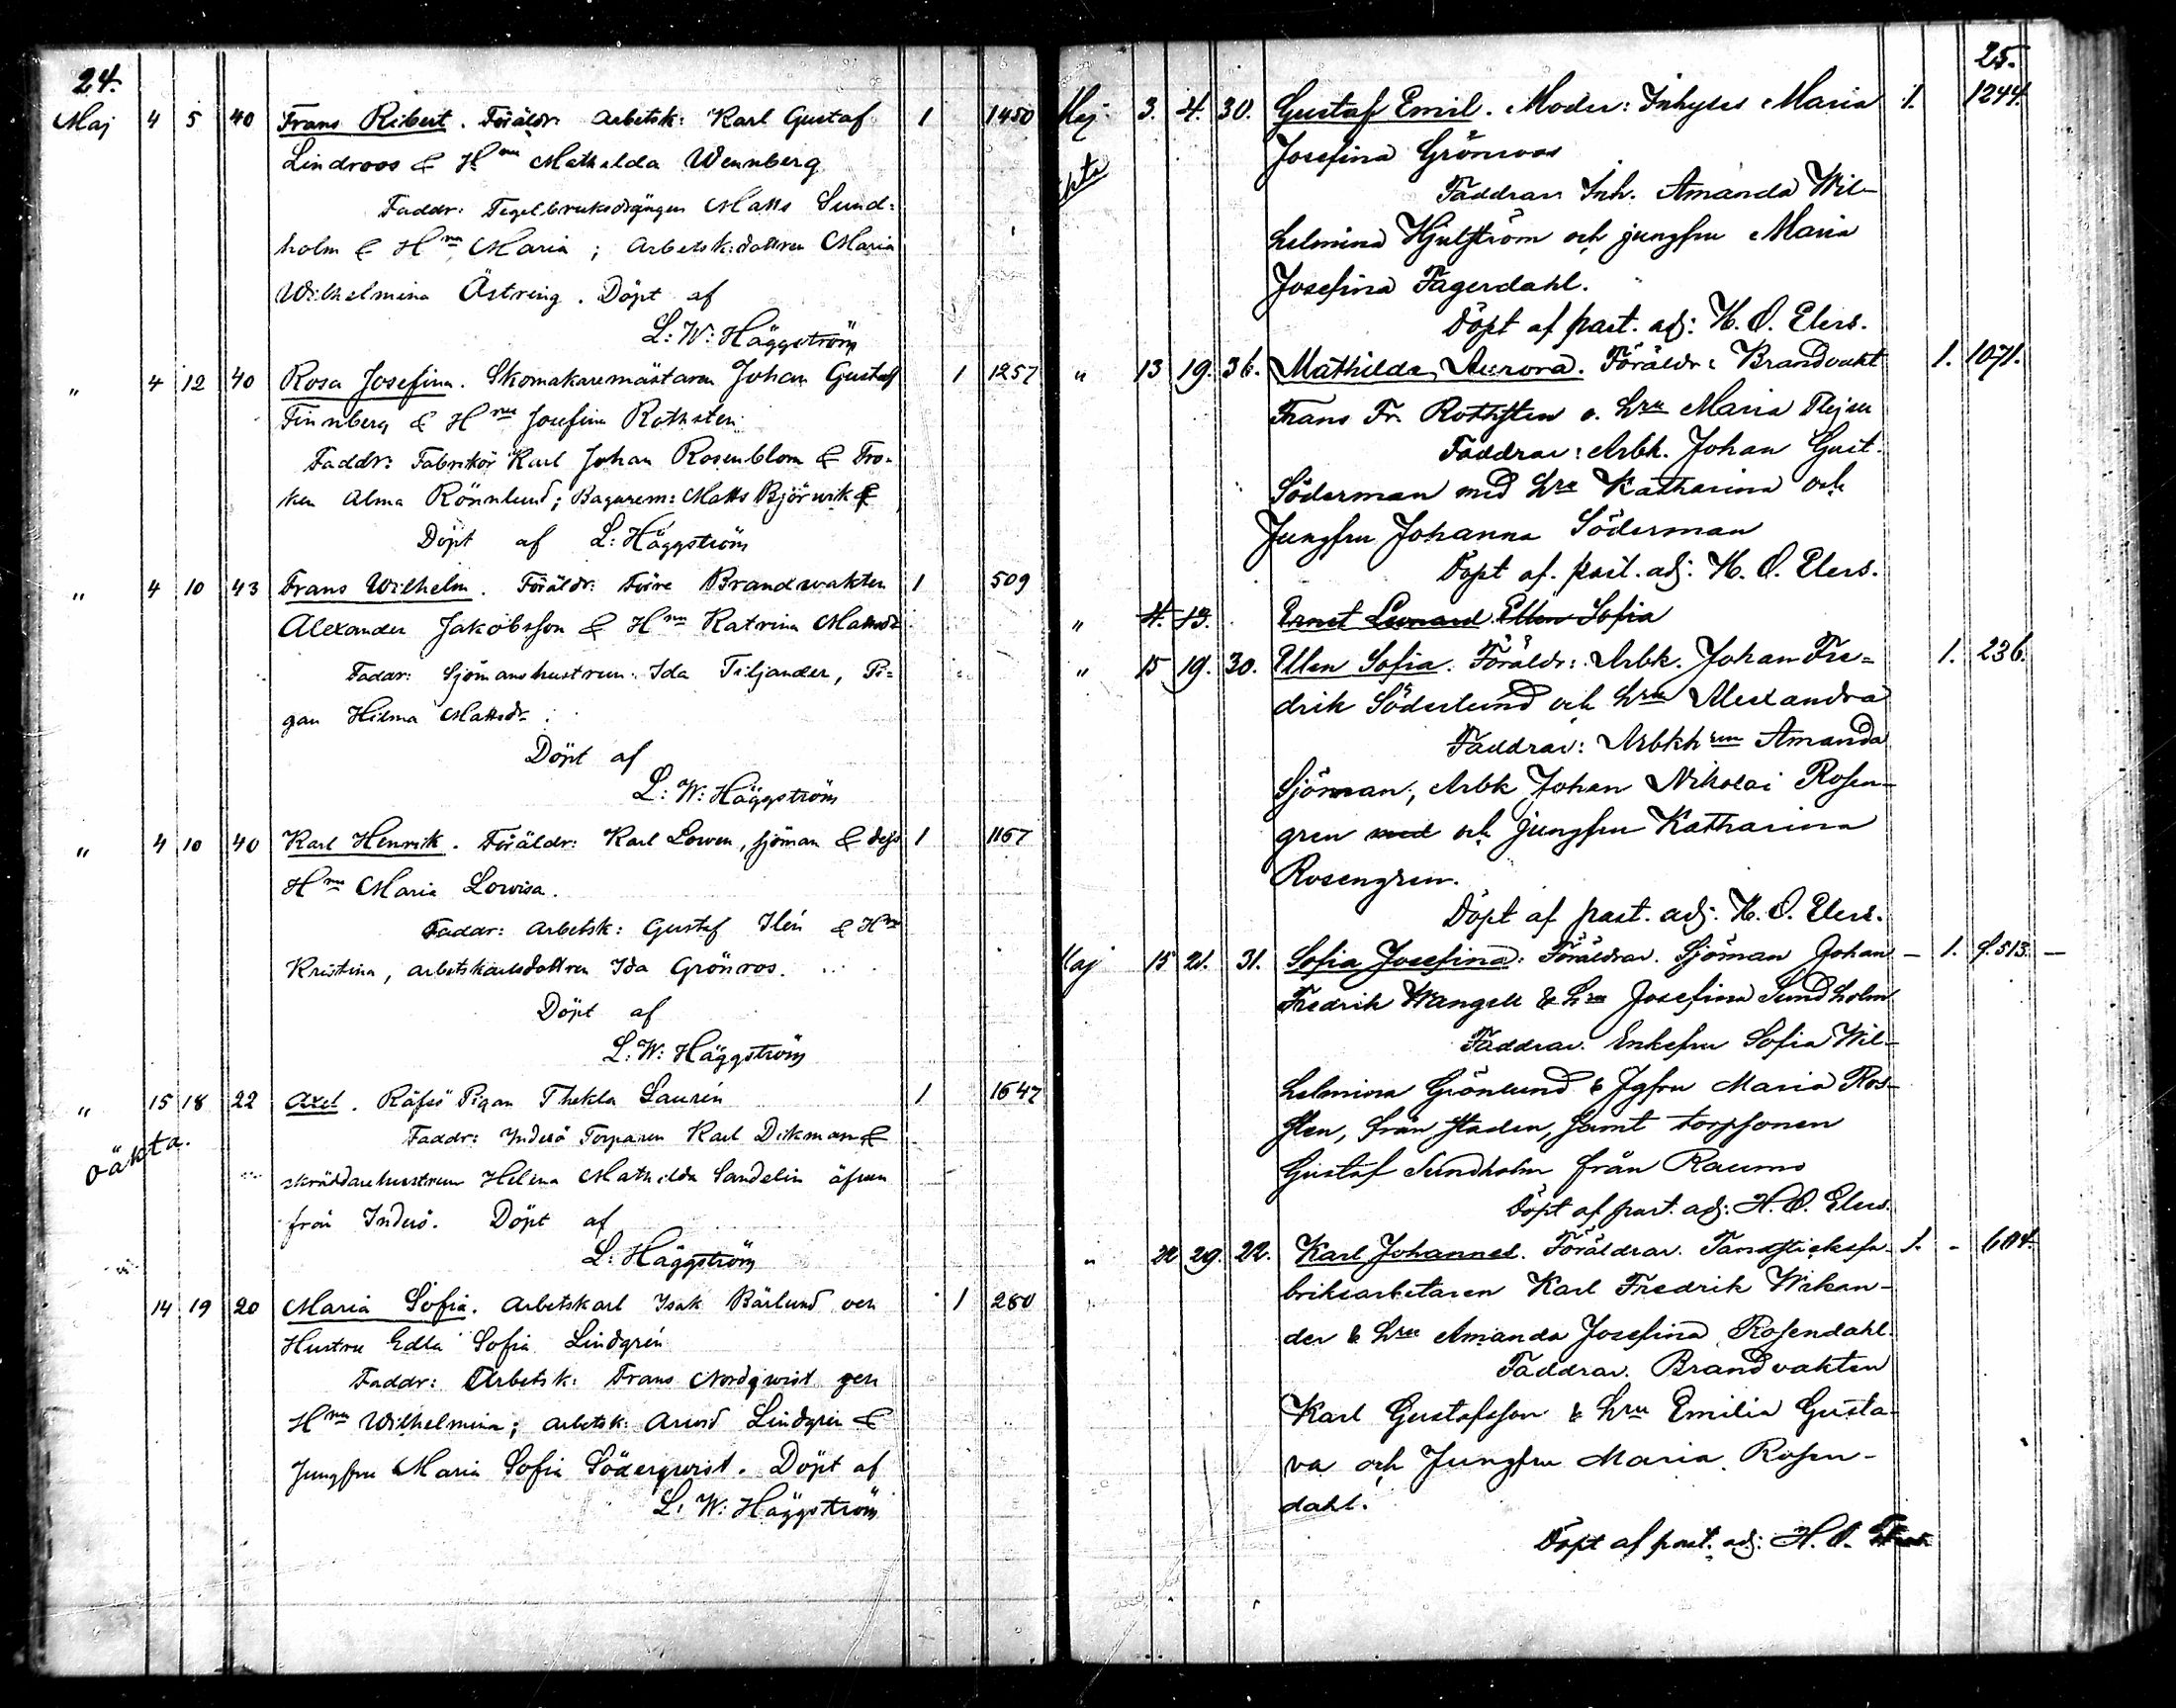 24.
Maj 4 5 40 Frans Ribert. Föräldr: Arbetsk: Karl Gustaf 1 1450
Lindroos & Hru Mathalda Wennberg
Faddr: Tegelbruksdrängen Matts Sund-
holm & Hru Maria; Arbetsk:dottren Maria
Wilhelmina Östring. Döpt af
L: W: Häggström
" 4 12 40 Rosa Josefina. Skomakaremästaren Johan Gustaf 1 1257
Finnberg & Hru Josefina Rothsten
Faddr: Fabrikör Karl Johan Rosenblom & Frö-
ken Alma Rönnlund; Bagarem: Matts Björwik &
Döpt af L: Häggström
" 4 10 43 Frans Wilhelm. Föräldr: Brandwakten 1 509
Alexander Jakobsson & Hru Katrina Mattsdr
Faddr: Sjömanshustrun Ida Tiljander, Pi-
gan Hilma Mattsdr
Döpt af
L: W: Häggström
" 4 10 40 Karl Henrik. Föräldr: Karl Lowen, sjöman & dess 1 1167
Hru Maria Lovisa.
Faddr: Arbetsk: Gustaf Ilén & Hru
Kristina, arbetskarlsdottren Ida Grönros.
Döpt af
L: W: Häggström
" 15 18 22 Axel. Räfsö Pigan Thekla Laurén 1 1647
oäkta.
Faddr: Inderö Torparen Karl Dikman &
skräddarehustrun Helena Mathilda Sandelin äfven
från Inderö. Döpt af
L: Häggström
14 19 20 Maria Sofia. Arbetskarl Isak Bärlund och 1 280
Hustru Edla Sofia Lindgrén
Faddr: Arbetsk: Frans Nordqwist och
Hru Wilhelmina; arbetsk: Arvid Lindgrén &
Jungfru Maria Sofia Söderqwist. Döpt af
L: W: Häggström
25.
Maj 3. 4. 30. Gustaf Emil. Moder: Inhyses Maria 1. 1244.
Josefina Grönroos
Faddrar: Inh. Amanda Wil-
helmina Hjulström och jungfru Maria
Josefina Fagerdahl.
Döpt af past. adj: H. O. Elers.
" 13 19. 36. Mathilda Aurora. Föräldr: Brandvakt 1. 1071.
Frans Fr. Rothsten o. hru Maria
Faddrar: Arbk. Johan Gust.
Söderman med hru Katharina och
Jungfru Johanna Söderman
Döpt af. past. adj: H. O. Elers.
" 4. 13. Ernst Leonard Ellen Sofia
" 15 19. 30. Ellen Sofia. Föräldr: Arbk. Johan Fre- 1. 236.
drik Söderlund och hru Alexandra
Faddrar: Arbkhrun Amanda
Sjöman, Arbk Johan Nikolai Rosen-
gren med och jungfru Katharina
Rosengren.
Döpt af past. adj. H. O. Elers.
Maj 15 21. 31. Sofia Josefina. Föräldrar. Sjöman Johan — 1. 513. —
Fredrik Wangell & hru Josefina Sundholm
Faddrar. Enkefru Sofia Wil-
helmina Grönlund & Jgfru Maria Ros-
sten, från staden, samt torpsonen
Gustaf Sundholm från Raumo
Döpt af past. adj: H. O. Elers.
" 22 29. 22. Karl Johannes. Föräldrar. Tändsticksfa- 1. - 604.
briksarbetaren Karl Fredrik Wikan-
der & hru Amanda Josefina Rosendahl.
Faddrar. Brandvakten
Karl Gustafsson & hru Emilia Gusta-
va och Jungfru Maria Rosen-
dahl.
Döpt af past. adj: H. O. Elers